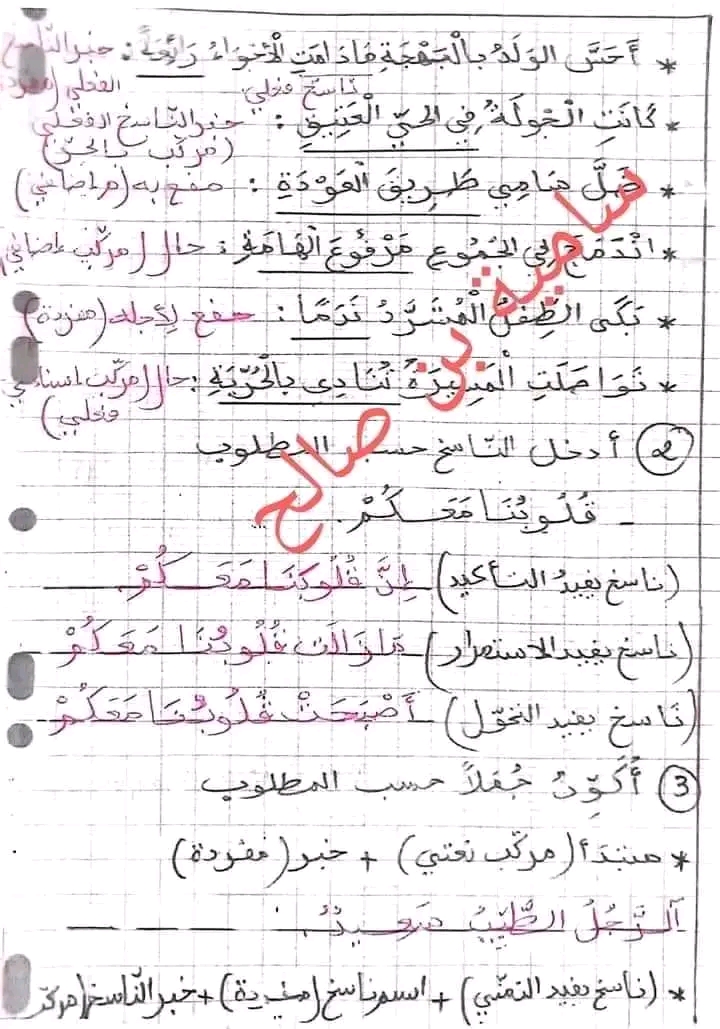 * أَحَسَّ الوَلَدُ بِالْبَهْجَةِ مَادَامَتِ الْأَجْوَاءُ رَائِعَةً : خبر النّاسخ
ناسخ فعلي الفعلي (مفردة)
* كَانَتِ الْجَوْلَةُ فِي الحَيِّ الْعَتِيقِ : خبر النّاسخ الفعلي
(مركّب بالجرّ)
* ضَلَّ سَامِي طَرِيقَ الْعَوْدَةِ : مفع به (م إضافي)
* انْدَمَجَ فِي الجُمُوعِ مَرْفُوعَ الْهَامَةِ : حال (مركّب إضافي)
* بَكَى الطِّفْلُ الْمُشَرَّدُ نَدَمًا : مفع لِأجله (مفردة)
* تَوَاصَلَتِ الْمَسِيرَةُ تُنَادِي بِالْحُرِّيَةِ : حال (مركّب اسنادي
فعلي)
سامية بن صالح
2 أدخل النّاسخ حسب المطلوب
- قُلُوبُنَا مَعَكُمْ.
(ناسخ يفيدُ التّأكيد) إِنَّ قُلُوبَنَا مَعَكُمْ.
(ناسخ يفيد الاستمرار) مَا زَالَتْ قُلُوبُنَا مَعَكُمْ
(نَاسخ يفيد التحوّل) أَصْبَحَتْ قُلُوبُنَا مَعَكُمْ
3 أُكَوِّنُ جُمَلاً حسب المطلوب
* مبتدَأ (مركّب نعتي) + خبر (مفردة)
اَلرَّجُلُ الطَّيِّبُ سَعِيدٌ.
* (ناسخ يفيد التمنّي) + اسم ناسخ (مفردة) + خبر النّاسخ (مركّب